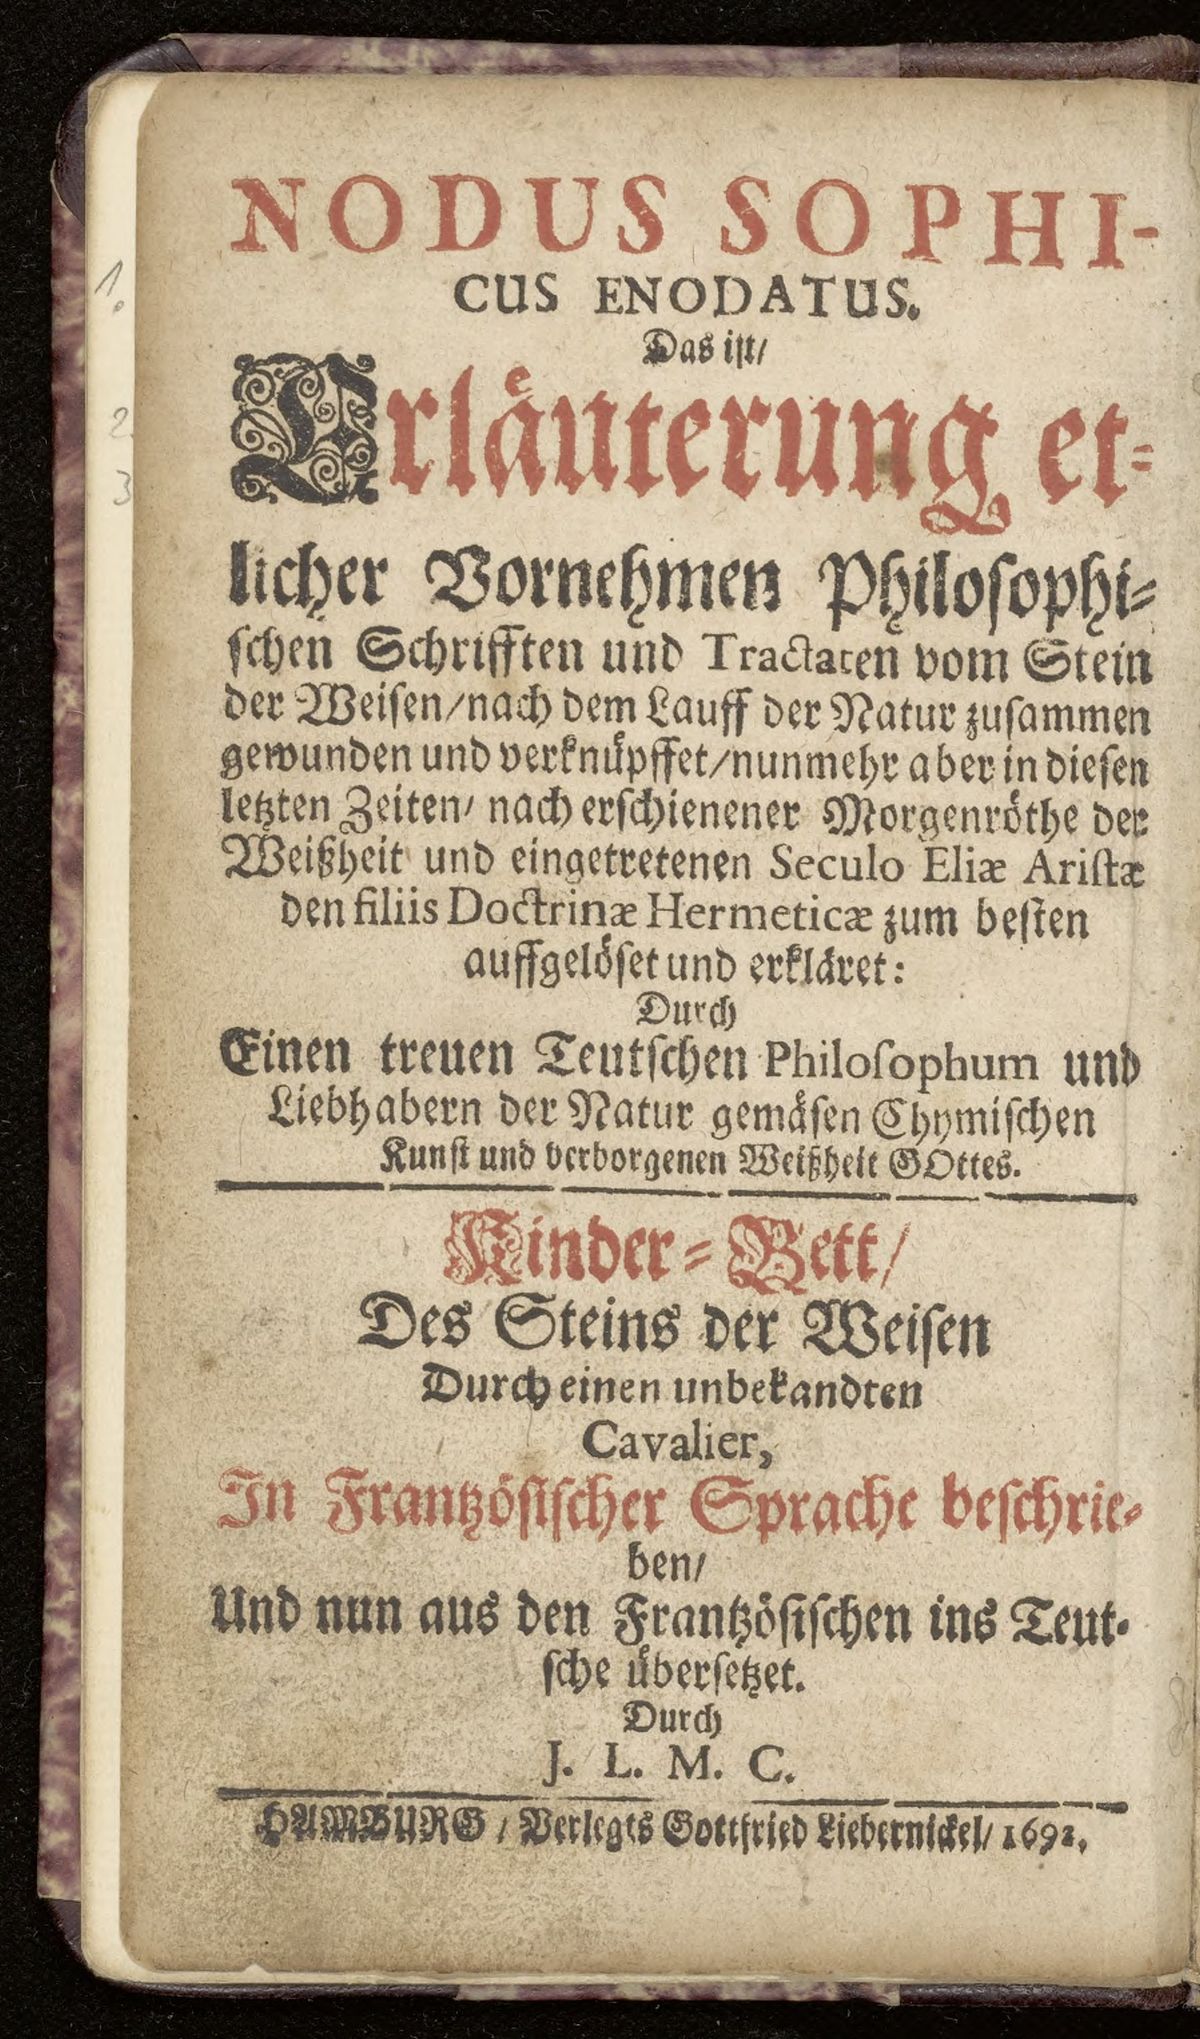 NODUS SOPHI-
CUS ENODATUS.
Das iſt/
Erlaͤuterung et-
licher Vornehmen Philoſophi-
ſchen Schrifften und Tractaten vom Stein
der Weiſen/nach dem Lauff der Natur zuſammen
gewunden und verknuͤpffet/nunmehr aber in dieſen
letzten Zeiten/ nach erſchienener Morgenroͤthe der
Weißheit und eingetretenen Seculo Eliæ Ariſtæ
den filiis Doctrinæ Hermeticæ zum beſten
auffgeloͤſet und erklaͤret:
Durch
Einen treuen Teutſchen Philoſophum und
Liebhabern der Natur gemaͤſen Chymiſchen
Kunſt und verborgenen Weißheit GOttes.
Kinder-Bett/
Des Steins der Weiſen
Durch einen unbekandten
Cavalier,
In Frantzoͤſiſcher Sprache beſchrie-
ben/
Und nun aus den Frantzoͤſiſchen ins Teut-
ſche uͤberſetzet.
Durch
J. L. M. C.
HAMBURG / Verlegts Gottfried Liebernickel/ 1692.
1.
2.
3